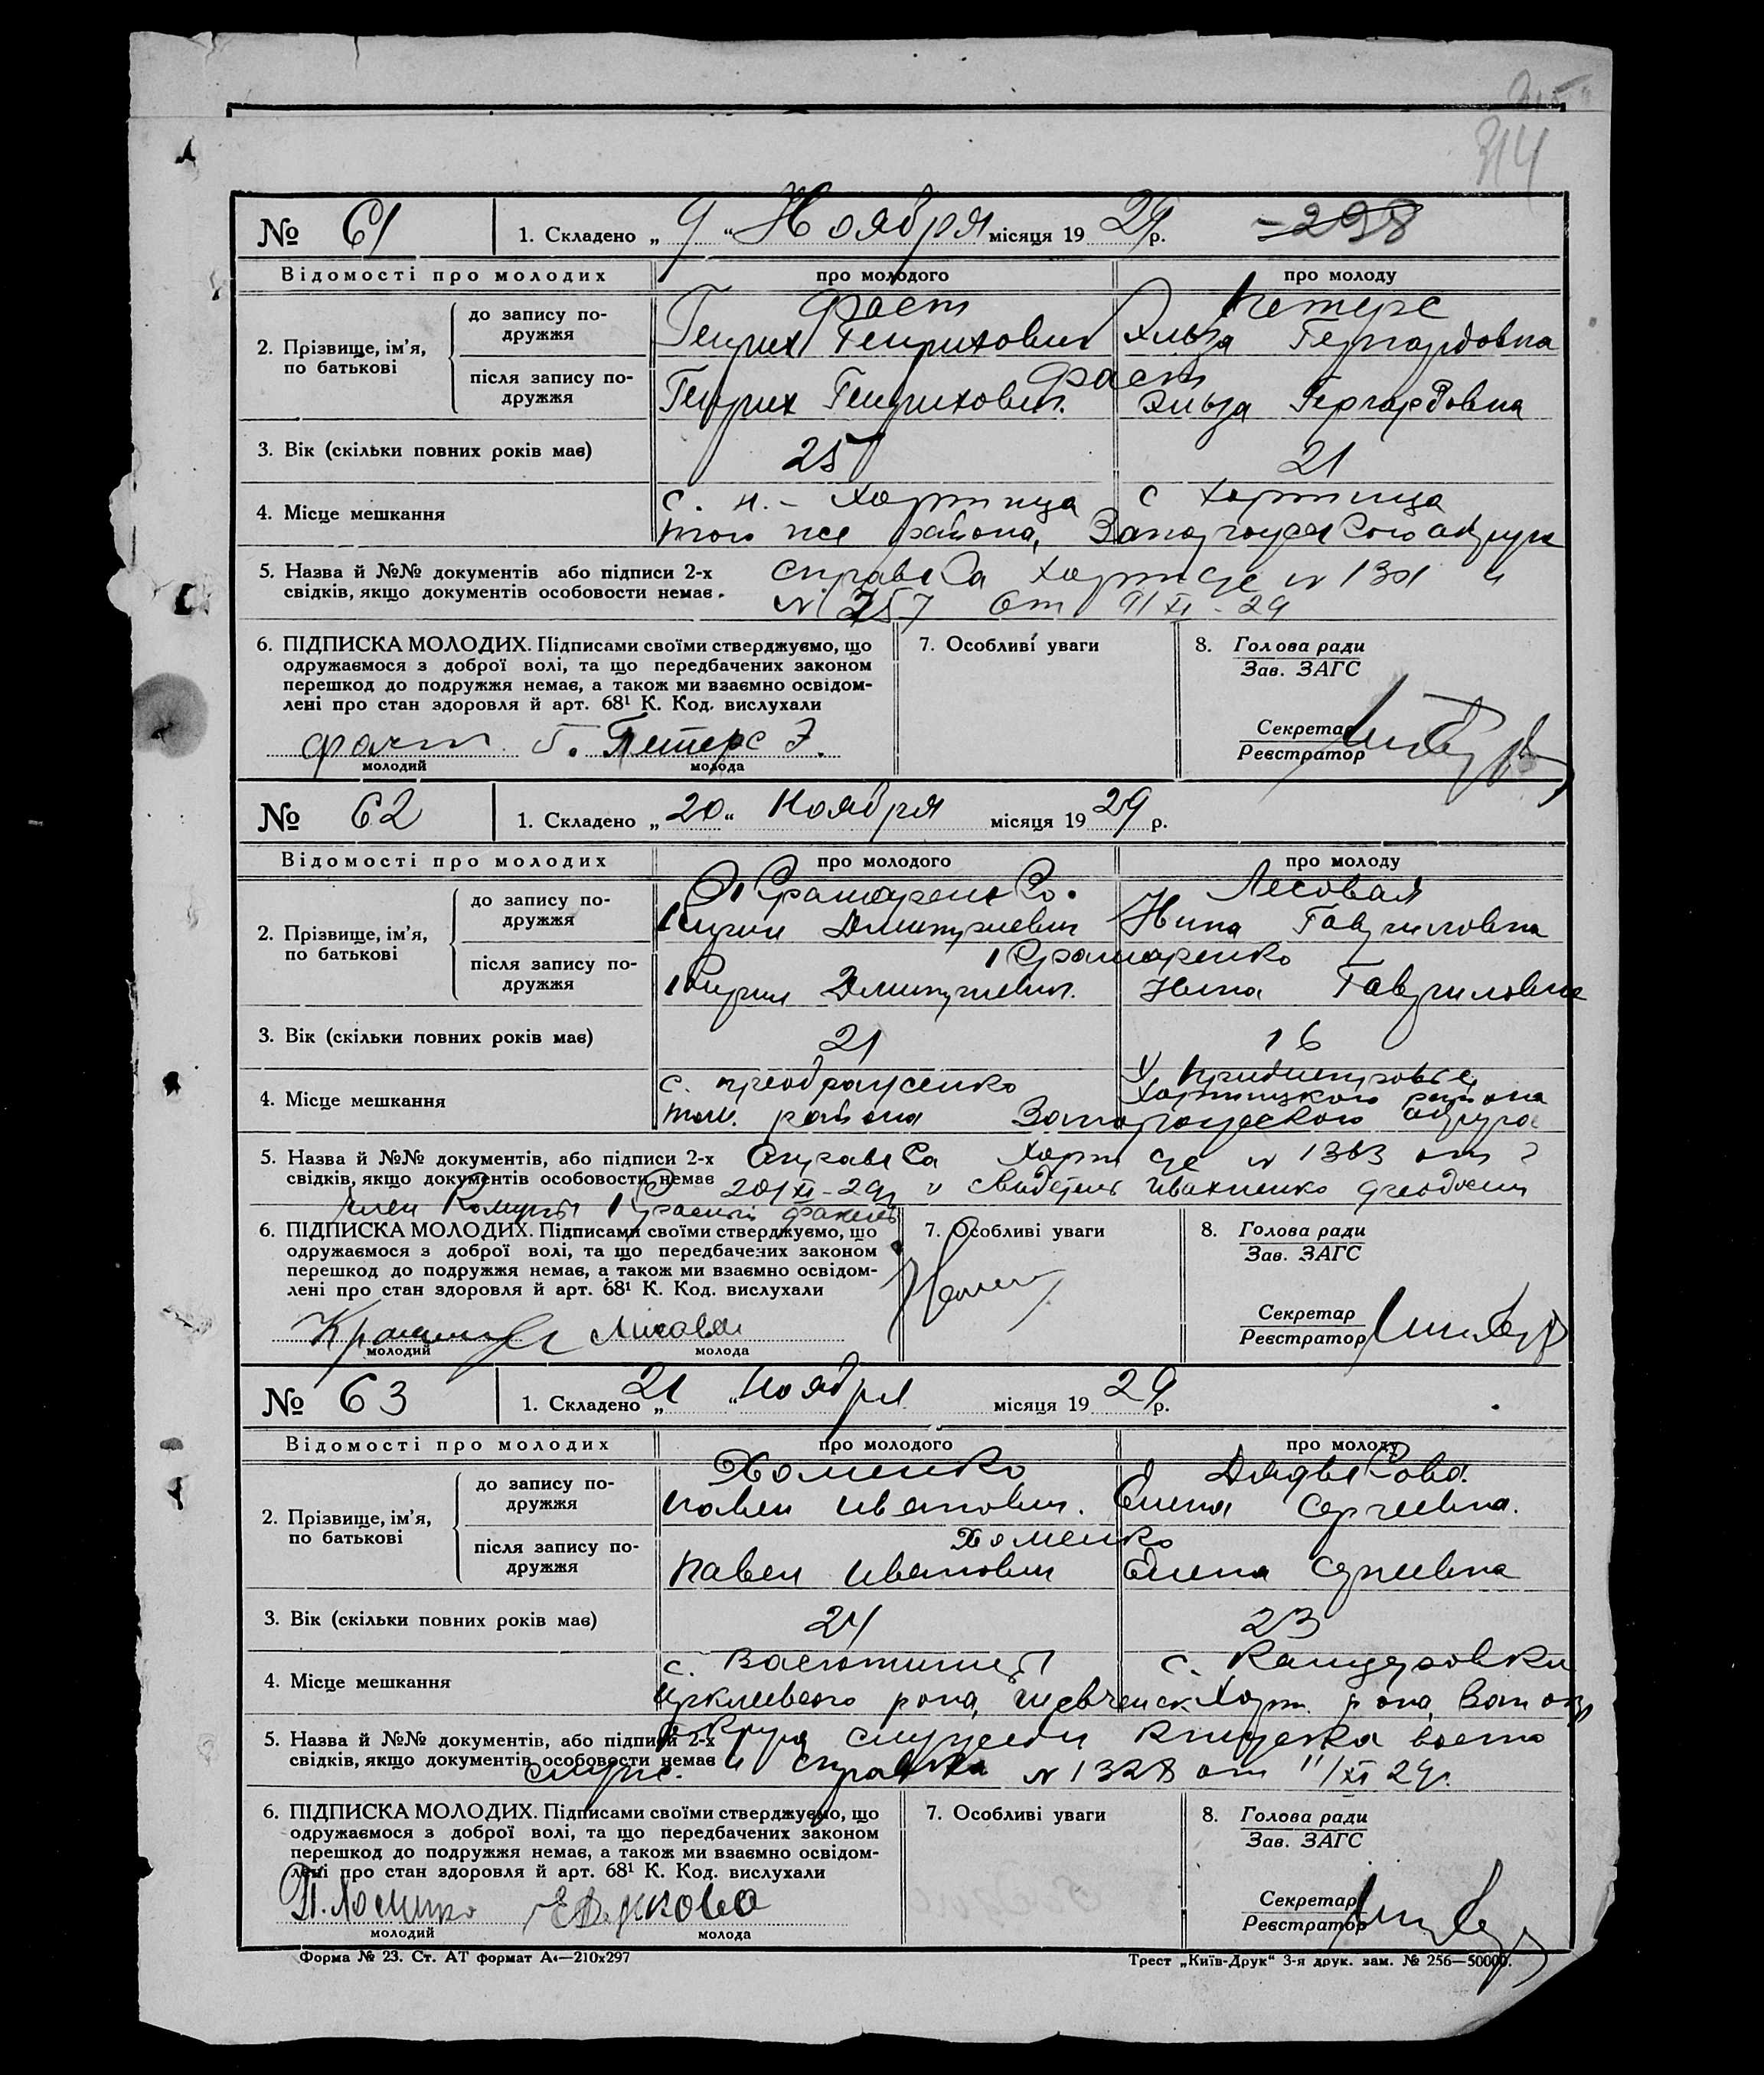 314
№ 61 1. Складено „ 9 “ Ноября місяця 19 29 р. 298
Відомості про молодих про молодого про молоду
2. Прізвище, ім’я, по батькові
до запису по-
дружжя
Фаст Петерс
Генрих Генрихович Эльза Гергардовна
після запису по-
дружжя
Фаст
Генрих Генрихович. Эльза Гергардовна
3. Вік (скільки повних років має) 25 21
4. Місце мешкання
с. н.- Хортица с Хортица
того же района, Запорожского округа
5. Назва й №№ документів або підписи 2-х справка Хортице № 1301 и
свідків, якщо документів особовости немає. № 257 от 9/XI - 29
6. ПІДПИСКА МОЛОДИХ. Підписами своїми стверджуємо, що
одружаємося з доброї волі, та що передбачених законом
перешкод до подружжя немає, а також ми взаємно освідом-
лені про стан здоровля й арт. 68¹ К. Код. вислухали
Фаст Г. Петерс Э.
молодий молода
7. Особливі уваги
8. Голова ради
Зав. ЗАГС
Секретар
Реєстратор
№ 62 1. Складено „ 20 “ Ноября місяця 19 29 р.
Відомості про молодих про молодого про молоду
2. Прізвище, ім’я,
по батькові
до запису по-
дружжя
Крамаренко. Лесовая
Кирил Дмитриевич Нина Гавриловна
після запису по-
дружжя
Крамаренко
Кирил Дмитриевич. Нина Гавриловна
3. Вік (скільки повних років має) 21 16
4. Місце мешкання
с. преображенко Приднепровье,
Хортицкого района
того. района Запорожского округа
5. Назва й №№ документів, або підписи 2-х Справка Хорт це № 1363 от
свідків, якщо документів особовости немає 20/XI-29 и Свидетель Ивахненко Феодосий
член Комуны Красный факел
6. ПІДПИСКА МОЛОДИХ. Підписами своїми стверджуємо, що
одружаємося з доброї волі, та що передбачених законом
перешкод до подружжя немає, а також ми взаємно освідом-
лені про стан здоровля й арт. 68¹ К. Код. вислухали
молодий молода
7. Особливі уваги
8. Голова ради
Зав. ЗАГС
Секретар
Реєстратор
№ 63 1. Складено „ 21 “ Ноября місяця 19 29 р.
Відомості про молодих про молодого про молоду
2. Прізвище, ім’я,
по батькові
до запису по-
дружжя
Хоменко Дядькова.
Павел Иванович. Елена Сергеевна.
після запису по-
дружжя
Хоменко
Павел Иванович Елена Сергеевна
3. Вік (скільки повних років має) 24 23
4. Місце мешкання
с. Васютинцы с. Канцеровки
Иркліевского рона, Шевченск Хорт. рона, Зап окр
5. Назва й №№ документів, або підписи 2-х округа служеби книжка воено
свідків, якщо документів особовости немає служ. и справка № 1328 от 11/XI 29г.
6. ПІДПИСКА МОЛОДИХ. Підписами своїми стверджуємо, що
одружаємося з доброї волі, та що передбачених законом
перешкод до подружжя немає, а також ми взаємно освідом-
лені про стан здоровля й арт. 68¹ К. Код. вислухали
П. Хоменко
молодий молода
7. Особливі уваги
8. Голова ради
Зав. ЗАГС
Секретар
Реєстратор
Форма № 23. Ст. АТ формат А4—210х297 Трест „Київ-Друк“ 3-я друк. зам. № 256—50000.